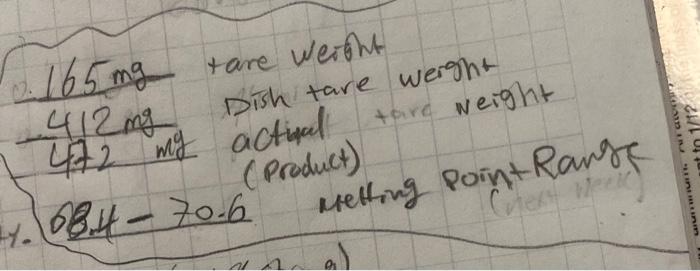 0.165 mg tare weight
.412 mg Dish tare weight
.472 mg actual tare weight
(Product)
68.4 - 70.6 Melting Point Range
(next week)